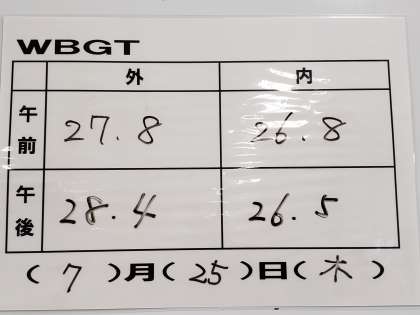 WBGT
外 内
午前 27.8 26.8
午後 28.4 26.5
(7)月(25)日(木)